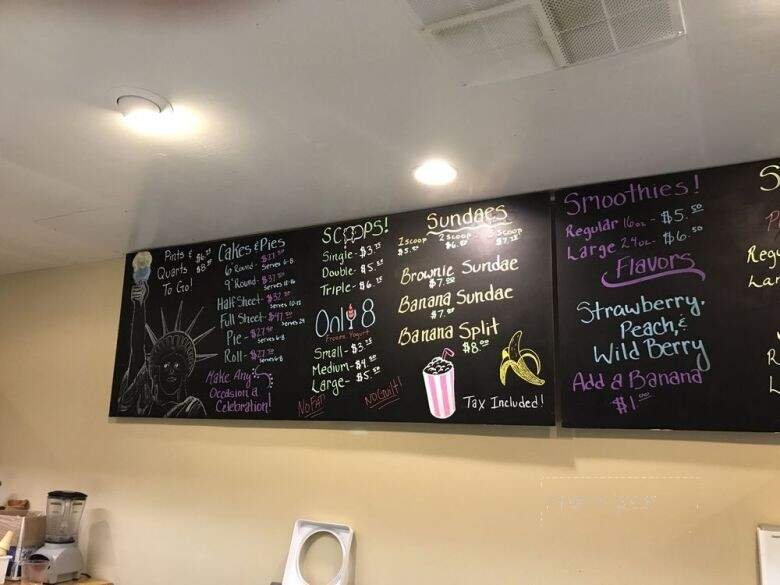 Pints &
Quarts
To Go!
Cakes & Pies
6" Round -
Serves 6-8
9" Round -
Half Sheet -
Full Sheet -
Pie -
Serves 6-8
Roll -
Serves 6-8
Make Any
Occasion a
Celebration!
SCOOPS!
Single - $3.75
Double - $5.
Triple - $6.
Only 8
Frozen Yogurt
Small - $3.
Medium - $4.
Large - $5.50
NO FAT!
NO Guilt!
Sundaes
1 scoop 2 scoop 3 scoop
$5. $6.
Brownie Sundae
$7.
Banana Sundae
$7.
Banana Split
$8.
Tax Included!
Smoothies!
Regular 16oz - $5.50
Large 24oz - $6.50
Flavors
Strawberry,
Peach, &
Wild Berry
Add a Banana
$1.00
S
Regu
Lar